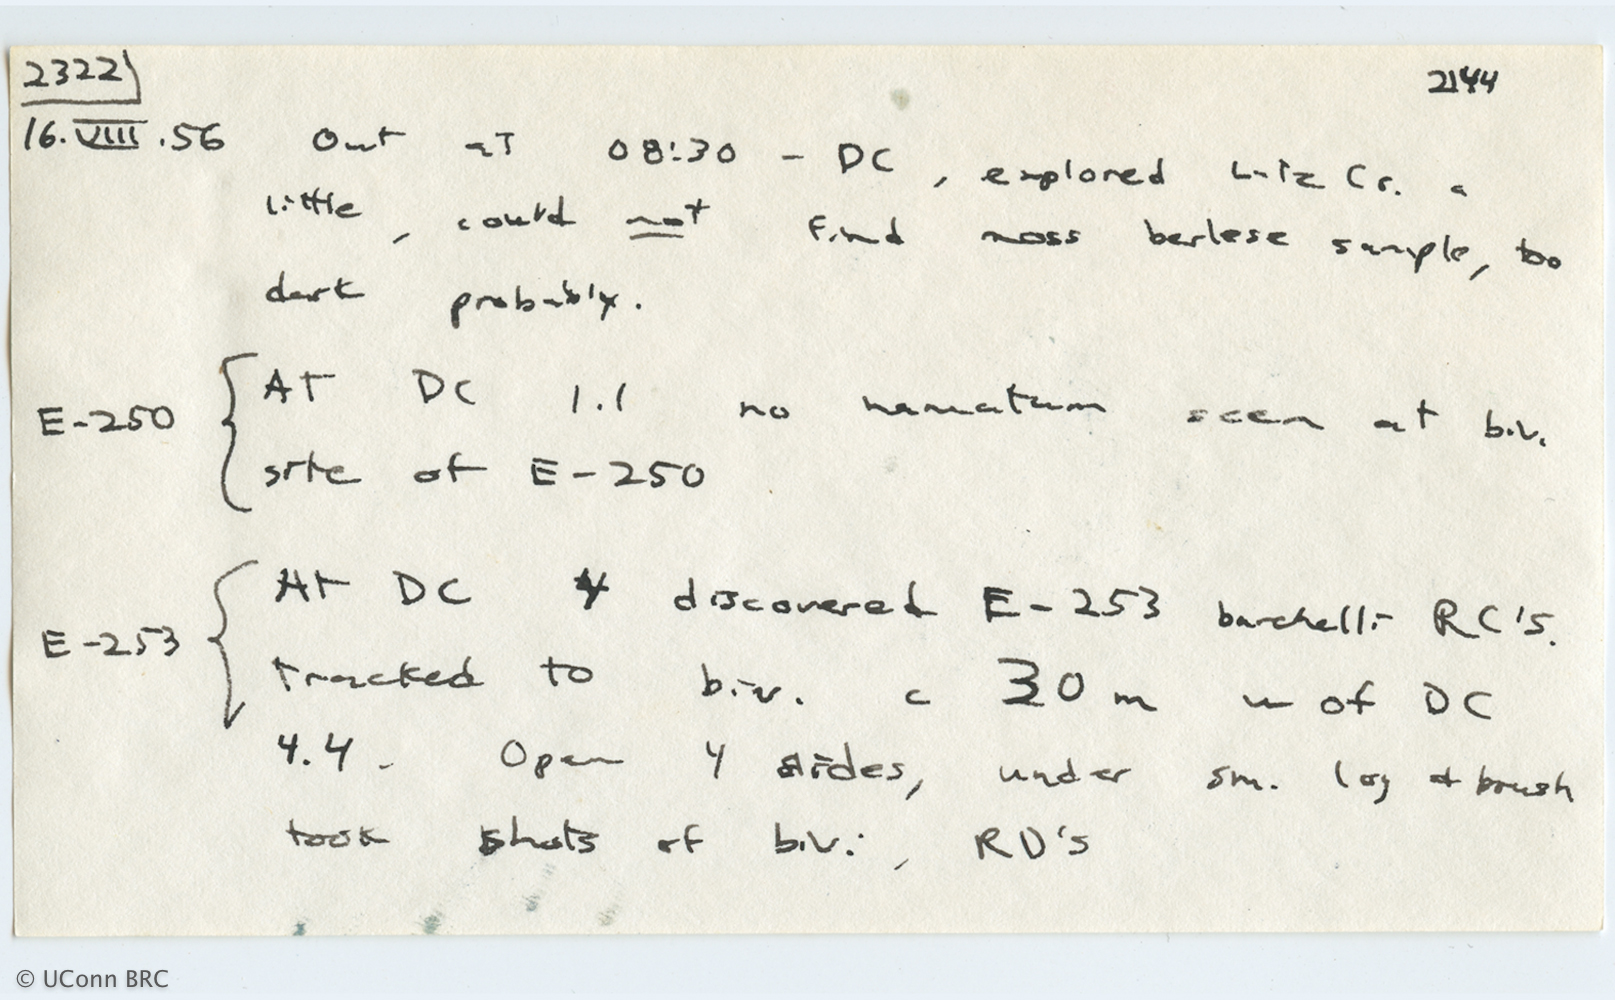 2322 2144
16.VIII.56 Out at 08:30 - DC, explored Lutz Cr. a
little, could not find moss berlese sample, too
dark probably.
E-250 At DC 1.1 no hamatum seen at biv.
site of E-250
E-253 At DC 4 discovered E-253 burchelli RC's.
Tracked to biv. c 30 m w of DC
4.4. Open 4 sides, under sm. log & brush
took shots of biv., RD's
© UConn BRC